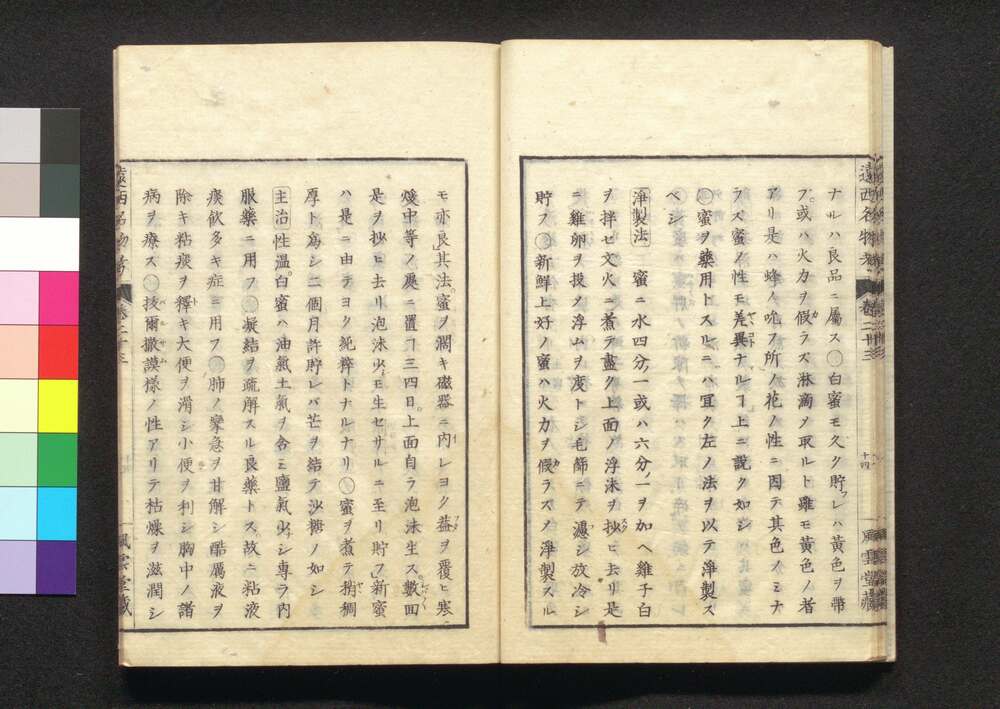 ナルハ良品ニ屬ス㊀白蜜モ久ク貯フレハ黃色ヲ帶
フ或ハ火力ヲ假ラズ淋滴ヲ取ルト雖モ黃色ノ者
アリ是ハ蜂ノ吮フ所ノ花ノ性ニ因テ其色ノミナ
ラズ蜜ノ性モ差異ナルヿ上ニ說ク如シ
蜜ヲ藥用トスルニハ宜ク左ノ法ヲ以テ淨製ス
ベシ
淨製法 蜜ニ水四分ノ一或ハ六分ノ一ヲ加ヘ雞子白
ヲ拌ゼ文火ニ煮テ盡ク上面ノ浮沫ヲ抄ヒ去リ是
ニ雞卵ヲ投ク浮ムヲ度トシ毛篩ニテ濾シ放冷シ
貯フ 新鮮上好ノ蜜ハ火力ヲ假ラスノ淨製スル
遠西名物考 卷二十三 十四 風雲堂藏
モ亦良其法蜜ヲ濶キ磁器ニ內レヨク葢ヲ覆ヒ寒
煖中等ノ處ニ置ヿ三四日上面自ラ泡沫生ス數回
是ヲ抄ヒ去リ泡沫少モ生セサルニ至リ貯フ新蜜
ハ是ニ由テヨク純粹トナルナリ 蜜ヲ煮テ稍稠
厚ト爲シ二個月許貯レバ芒ヲ結テ沙糖ノ如シ
主治 性溫白蜜ハ油氣土氣ヲ含ミ鹽氣少シ專ラ內
服藥ニ用フ 凝結ヲ疏解スル良藥トス故ニ粘液
痰飮多キ症ニ用フ 肺ノ攣急ヲ甘解シ酷厲液ヲ
除キ粘痰ヲ釋キ大便ヲ滑シ小便ヲ利シ胸中ノ諸
病ヲ療ス 抜爾撒謨樣ノ性アリテ枯燥ヲ滋潤シ
遠西名物考 卷二十三 風雲堂藏